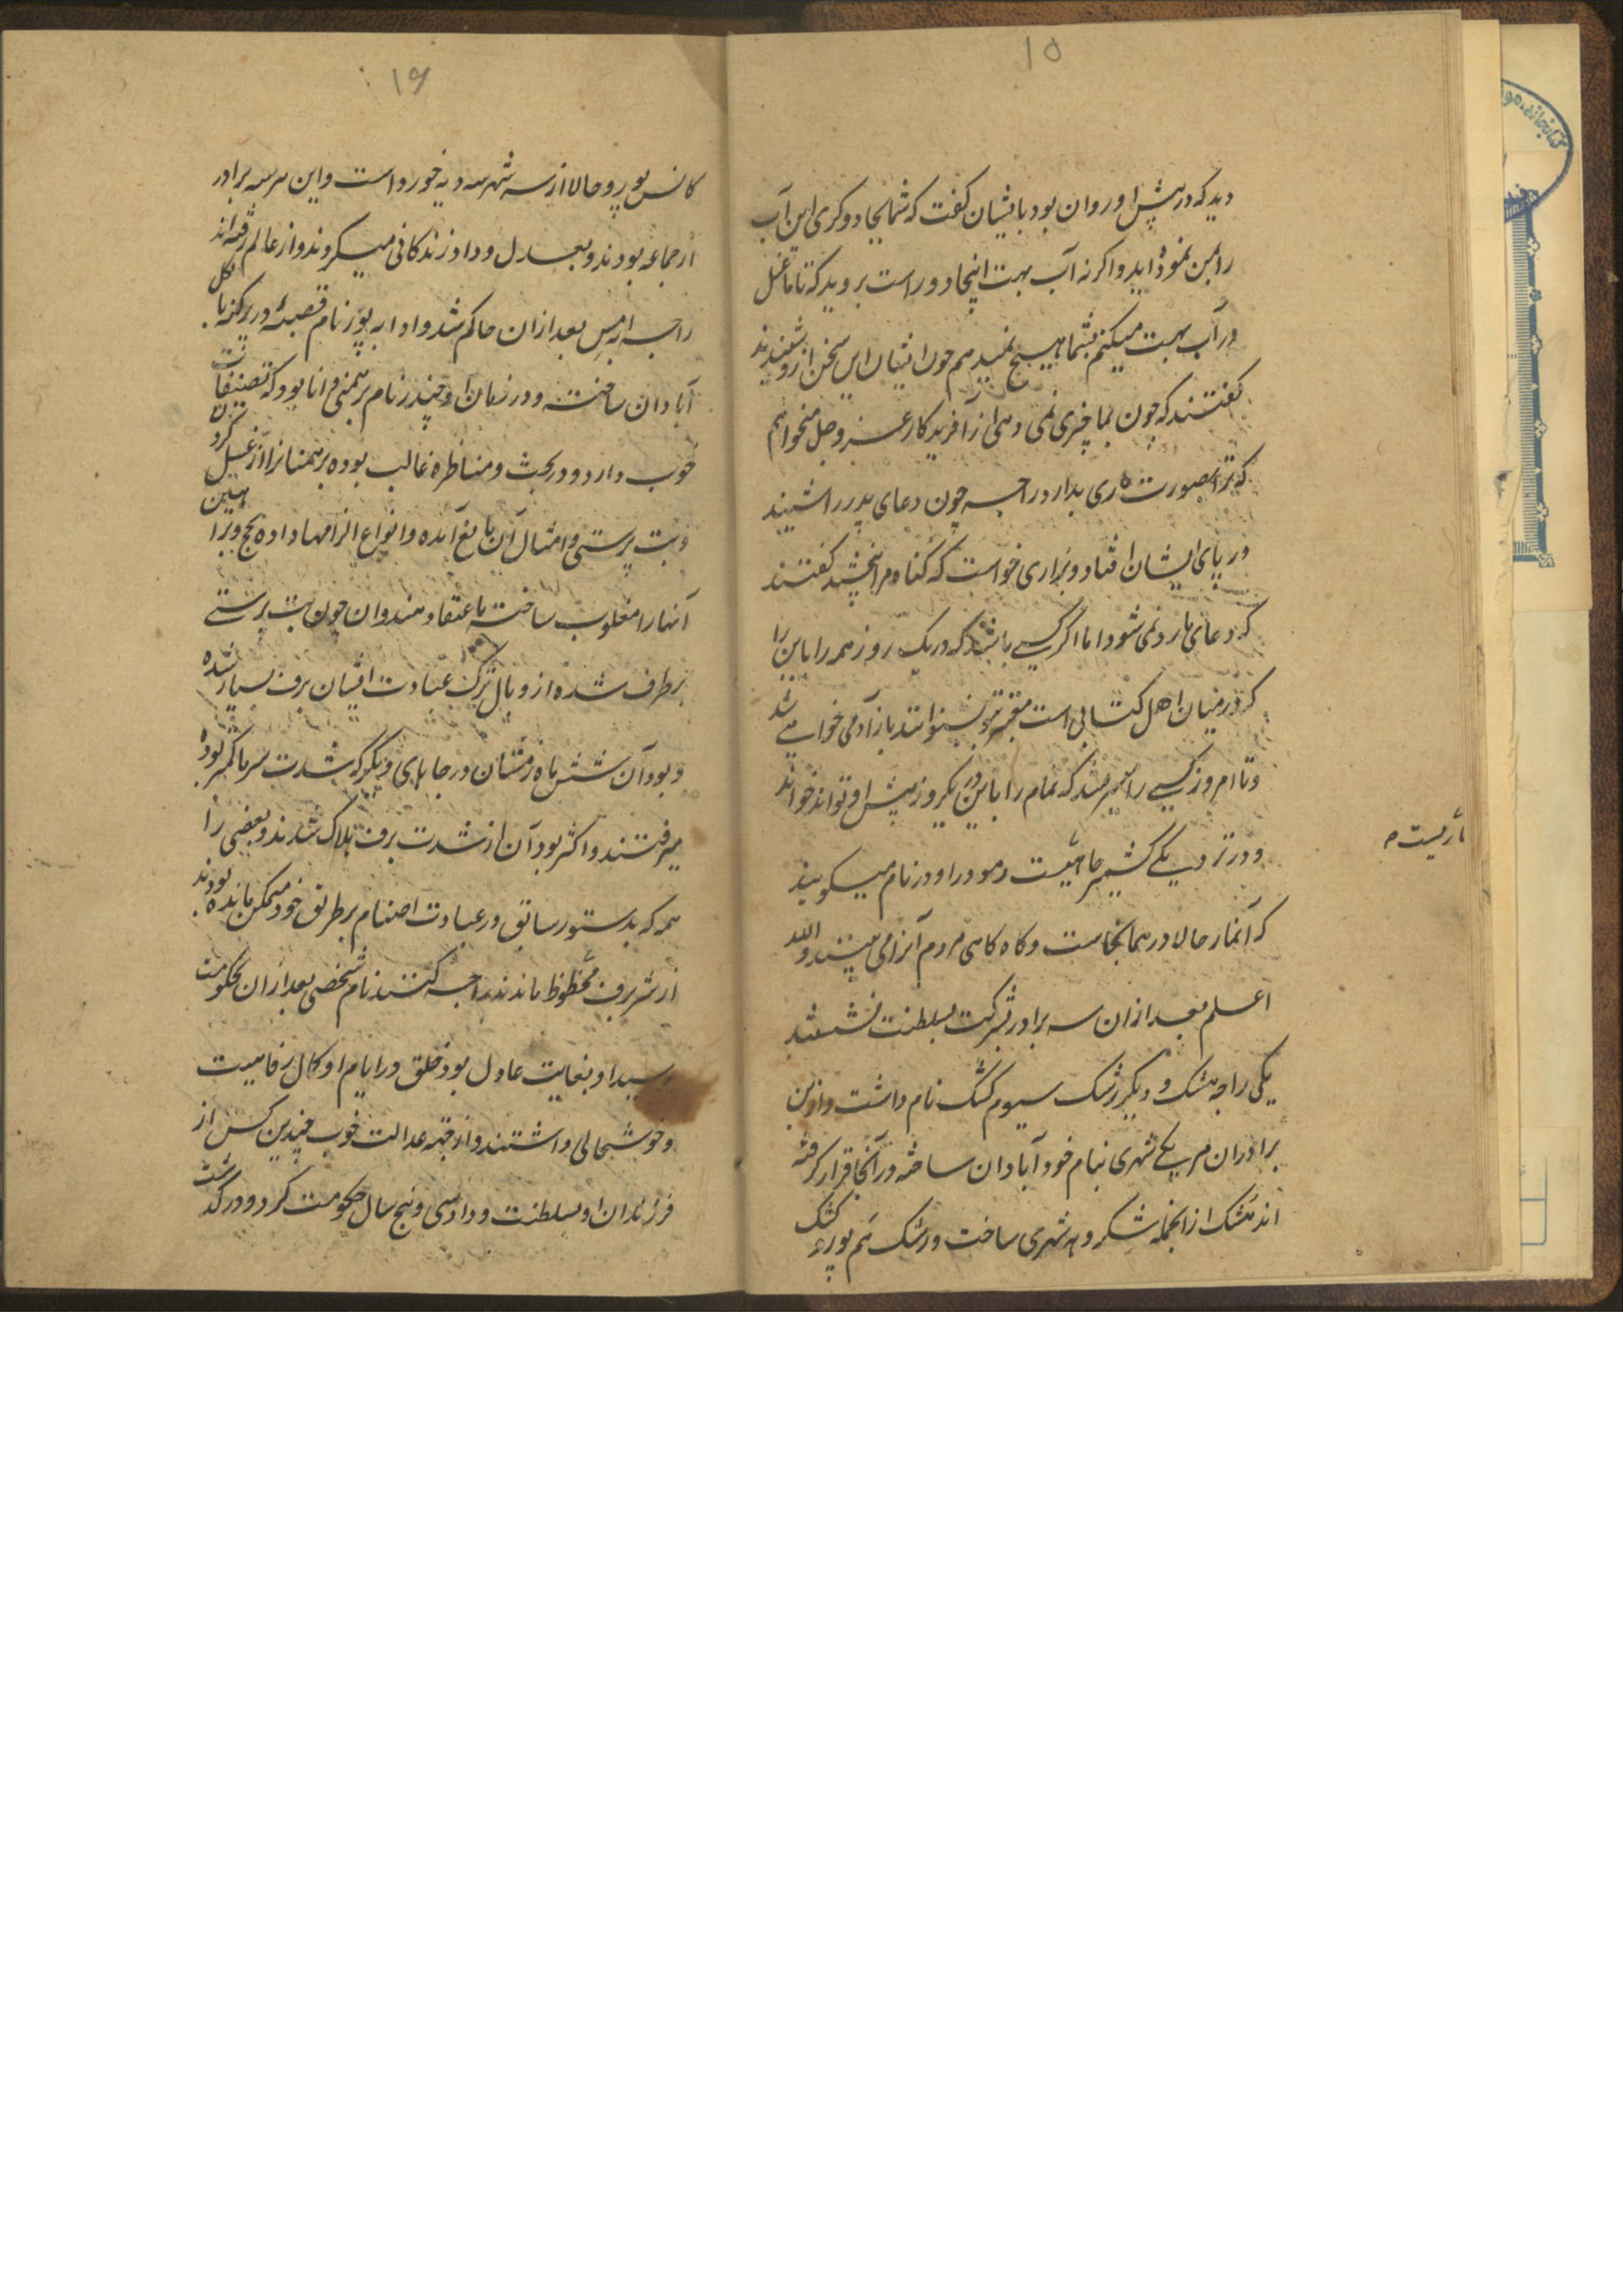 ۱۵
دید که در پیش او روان بود بایشان گفت که شما بجادوگری این آب
را بمن نموده اید و اگر نه آب بهت اینجا دور است بروید که تا ما غسل
در آب بهت میکنم بشما هیچ نمیدهم چون ایشان این سخن ازو شنیدند
گفتند که چون بما چیزی نمی دهی از آفریدگار عز و جل میخواهم
که ترا بصورت ماری بدارد راجه چون دعای بد را شنید
در پای ایشان افتاد و بزاری خواست که گناه مرا بخشید گفتند
که دعای ما رد نمی شود اما اگر کسی باشد که در یک روز همه راماین را
که در میان اهل کتابی است معتبر بتو بشنواند باز آدمی خواهی شد
و تا امروز کسی را میسر نشد که تمام راماین در یکروز پیش او تواند خواند
و در نزدیکی کشمیر جائیست دمودر اودر نام میگویند
که آنمار حالا در همانجاست و گاه گاهی مردم آنرا می بینند والله
ماریست
اعلم بعد از آن سه برادر بشرکت بسلطنت نشستند
یکی راجه هشک و دیگر زشک سیوم کشک نام داشت و ازین
برادران هر یکی شهری بنام خود آبادان ساخته در آنجا قرار گرفته
اند هشک از انجمله شکروه شهری ساخت و زشک هم پور و کشک
۱۶
کانس پور و حالا از سه شهر سه دیه خورد است و این هر سه برادر
از جماعه بودند و بعدل و داد زندگانی میکردند و از عالم رفته اند
راجه ابهمن بعد از ان حاکم شد و ادابه پور نام قصبه در پرگنه ناکل
آبادان ساخته و در زمان او چندر نام برهمنی دانا بود که تصنیفات
خوب دارد و در بحث و مناظره غالب بوده برهمنانرا از غسل کردن
و بت پرستی و امثال آن مانع آمده و انواع الزامها داده بحج و براهین
آنها را مغلوب ساخت باعتقاد هندوان چون بت پرستی
برطرف شده از وبال ترک عبادت ایشان برف بسیار شده
و بودآن شش ماه زمستان در جاهای دیگر که شدت سرما کمتر بوده
میرفتند و اکثر بودآن از شدت برف هلاک شدند و بعضی را
همه که بدستور سابق در عبادت اصنام بر طریق خود متمکن مانده بودند
از شر برف محظوظ ماندند راجه کنند نام شخصی بعد از ان بحکومت
رسید او بغایت عادل بود خلق در ایام او کمال رفاهیت
و خوشحالی داشتند و از جهة عدالت خوب چندین کس از
فرزندان او بسلطنت و داد سی و پنج سال حکومت کرد و درگذشت